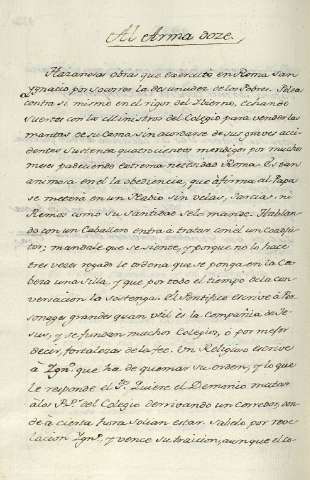 Al Arma doze.
Hazanosas obras que exercitò en Roma San
Ygnacio por socorrer la desnudez de los Pobres. Pelea
contra si mismo en el rigor del Ybierno, echando
suertes con los Ministros del Colegio para vender las
mantas de su Cama sin acordarse de sus graves acci
dentes Sustenta quatrocientos mendigos por muchos
meses padeciendo extrema necesidad Roma. Es tan
animosa en el la obediencia, que afirma al Papa
se meterà en un Navio sin velas, Jarcias, ni
Remos como su Santidad se lo mande. Hablan-
do con un Caballero entra a tratar con el un Coadju
tor; mandale que se siente, y porque no lo hace
tres veces rogado le ordena que se ponga en la Ca
beza una Silla, y que por todo el tiempo de la con-
versacion la sostenga. El Pontifice escrive à Per-
sonages grandes quan util es la Compañia de Je-
sus, y se fundan muchos Colegios, ò por mejor
decir, fortalezas de la fee. Un Religioso escrive
à Ygn.º que ha de quemar su orden, y lo que
le responde el S.º Quiere el Demonio matar
à los P.P.s del Colegio derrivando un corredor, don-
de à cierta hora solian estar. Sabelo por reve
lacion Ygn.º, y vence su traicion, aunque el lo-